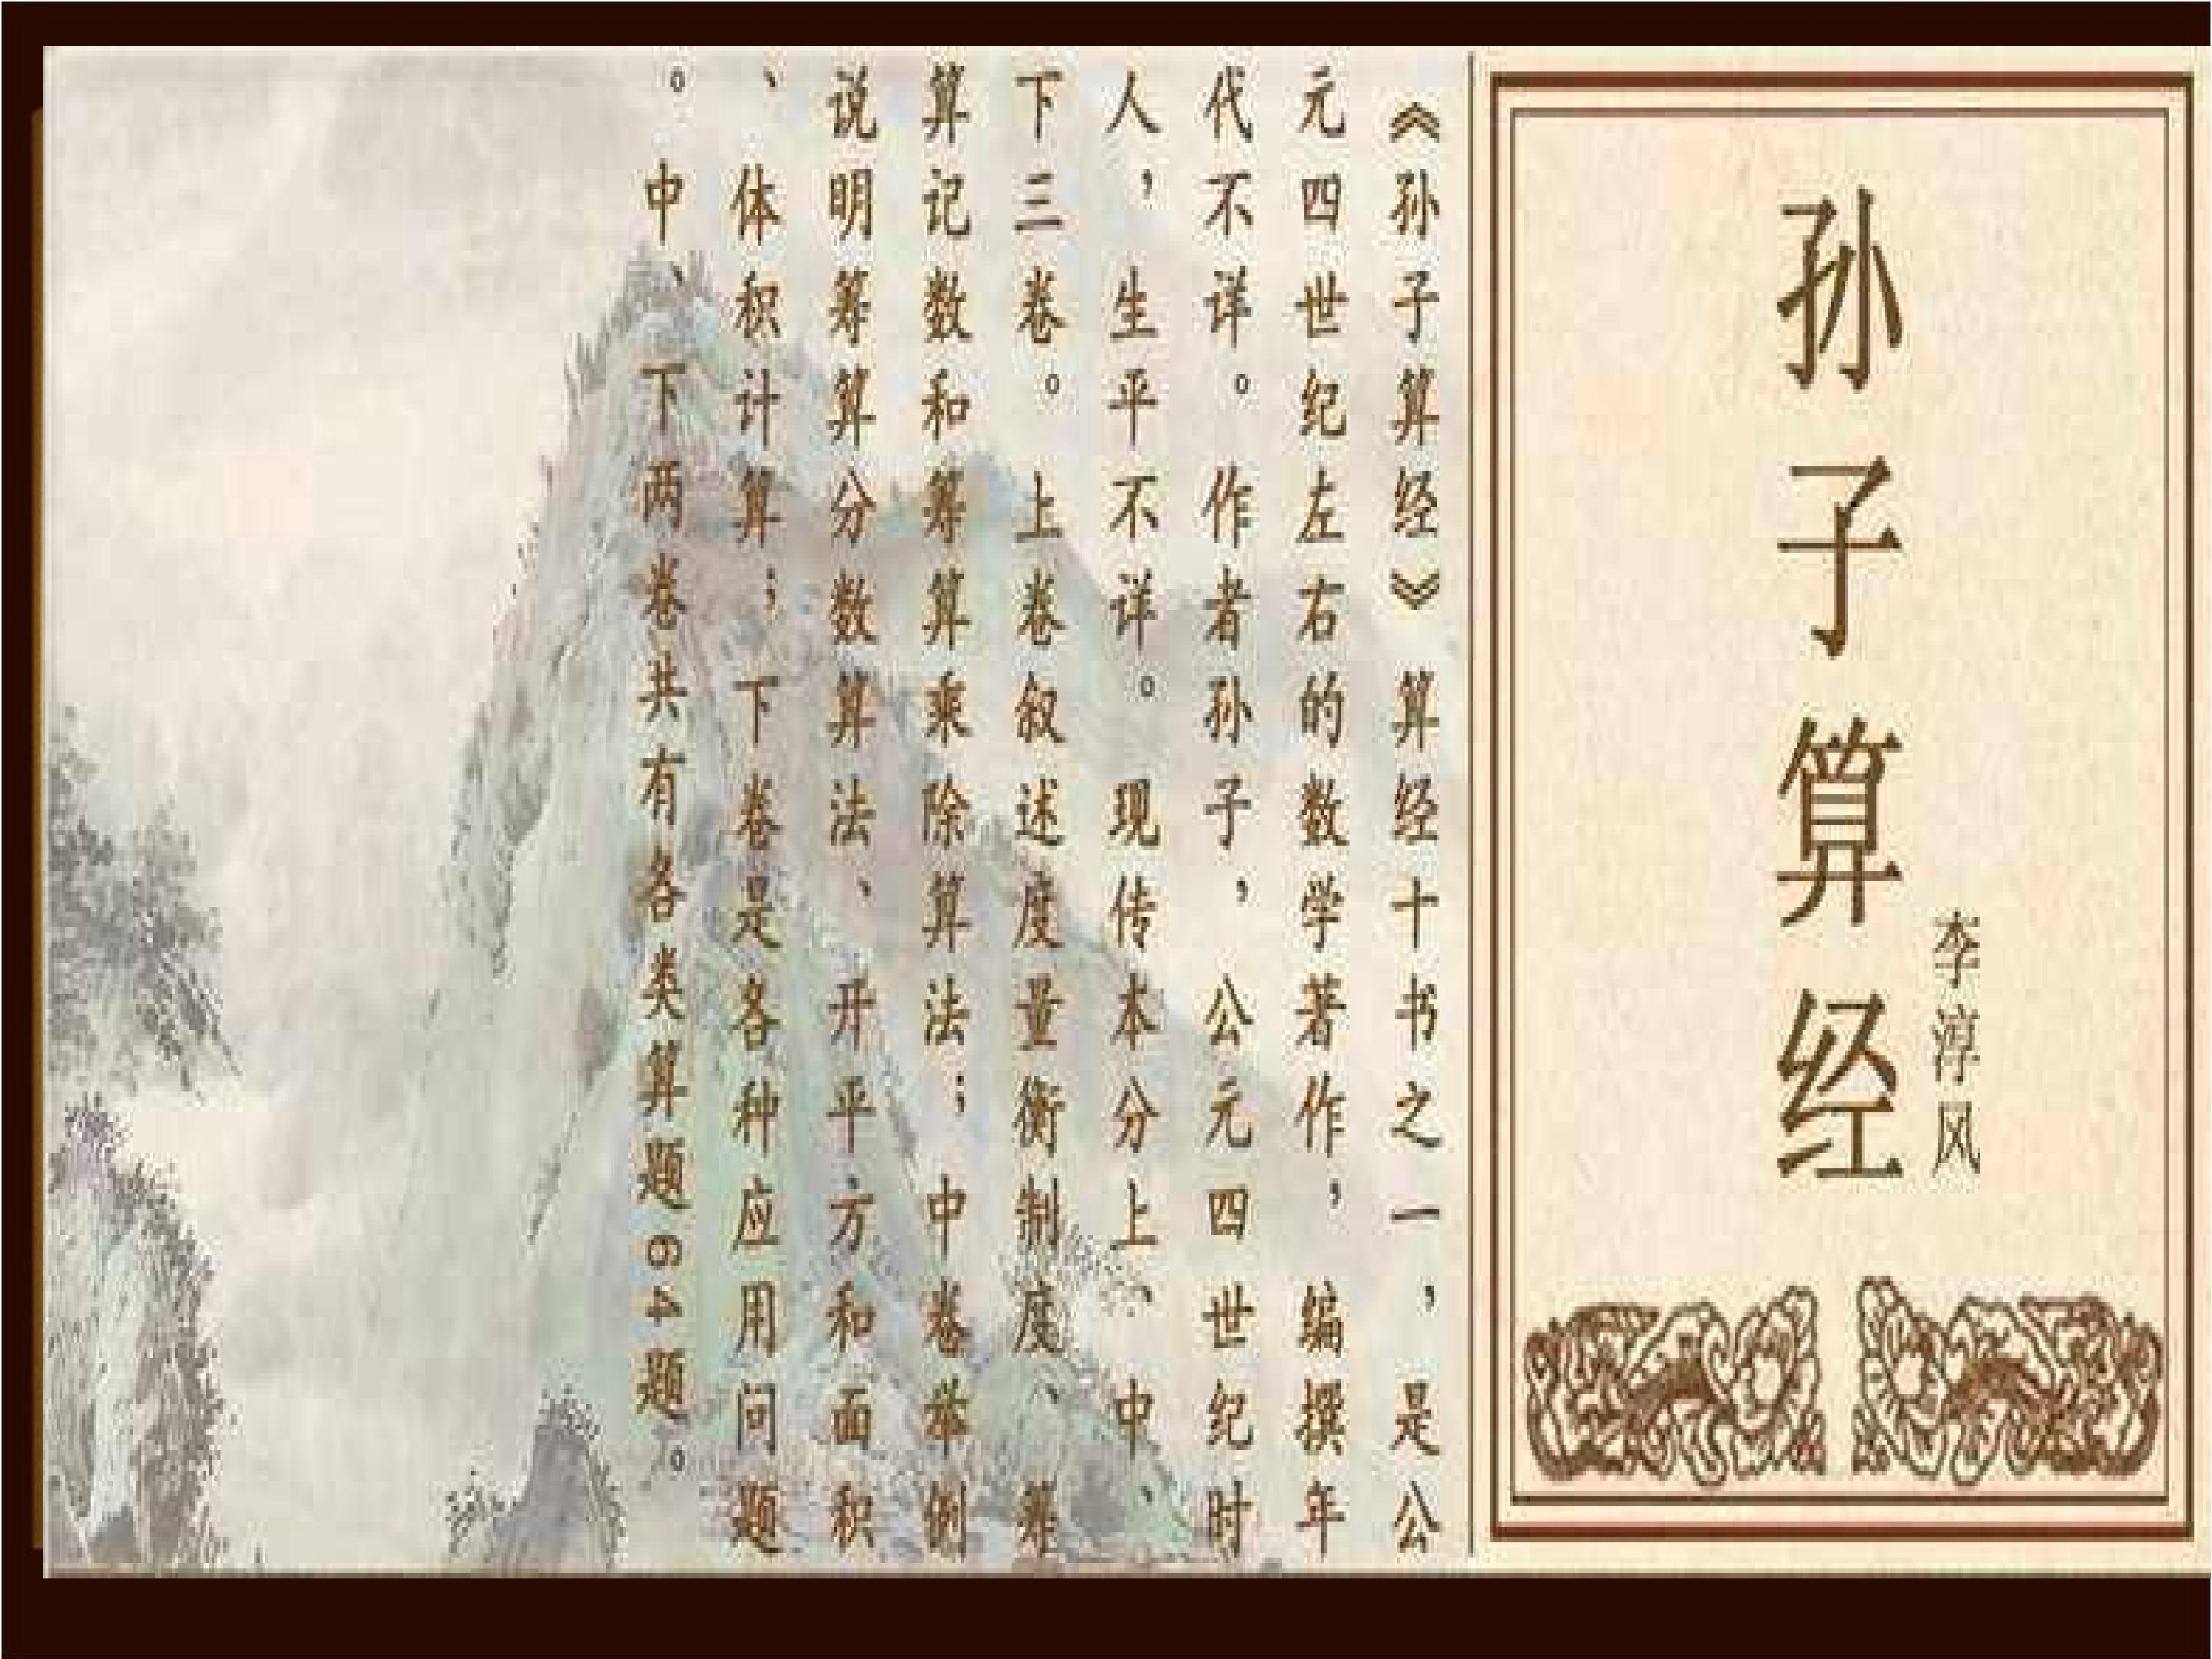 孙子算经
李淳风
《孙子算经》算经十书之一，是公
元四世纪左右的数学著作，编撰年
代不详。作者孙子，公元四世纪时
人，生平不详。现传本分上、中、
下三卷。上卷叙述度量衡制度、筹
算记数和筹算乘除算法；中卷举例
说明筹算分数算法、开平方和面积
、体积计算；下卷是各种应用问题
。中、下两卷共有各类算题64题。